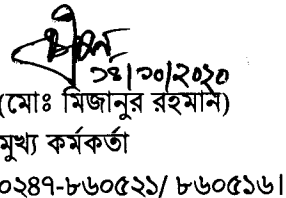 ১৪/১০/২০২০
(মোঃ মিজানুর রহমান)
মুখ্য কর্মকর্তা
০২৪৭-৮৬০৫২১/ ৮৬০৫১৬।